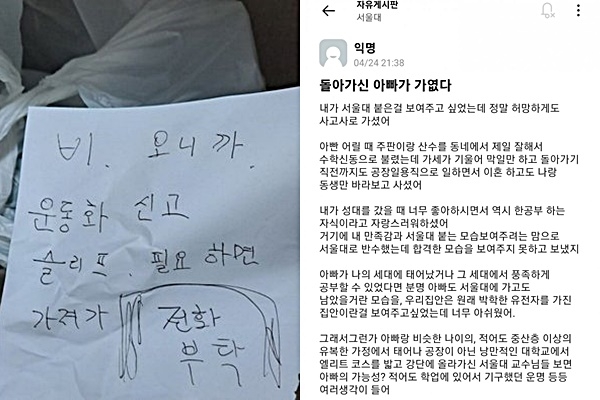 비. 오니까.
운동화 신고
슬리프. 필요 하면
가져가
전화
부탁
자유게시판
서울대
익명
04/24 21:38
돌아가신 아빠가 가엾다
내가 서울대 붙은걸 보여주고 싶었는데 정말 허망하게도
사고사로 가셨어
아빤 어릴 때 주판이랑 산수를 동네에서 제일 잘해서
수학신동으로 불렸는데 가세가 기울어 막일만 하고 돌아가기
직전까지도 공장일용직으로 일하면서 이혼 하고도 나랑
동생만 바라보고 사셨어
내가 성대를 갔을 때 너무 좋아하시면서 역시 한공부 하는
자식이라고 자랑스러워하셨어
거기에 내 만족감과 서울대 붙는 모습보여주려는 맘으로
서울대로 반수했는데 합격한 모습을 보여주지 못하고 보냈지
아빠가 나의 세대에 태어났거나 그 세대에서 풍족하게
공부할 수 있었다면 분명 아빠도 서울대에 가고도
남았을거란 모습을, 우리집안은 원래 박학한 유전자를 가진
집안이란걸 보여주고싶었는데 너무 아쉬웠어.
그래서그런가 아빠랑 비슷한 나이의, 적어도 중산층 이상의
유복한 가정에서 태어나 공장이 아닌 낭만적인 대학교에서
엘리트 코스를 밟고 강단에 올라가신 서울대 교수님들 보면
아빠의 가능성? 적어도 학업에 있어서 기구했던 운명 등등
여러생각이 들어